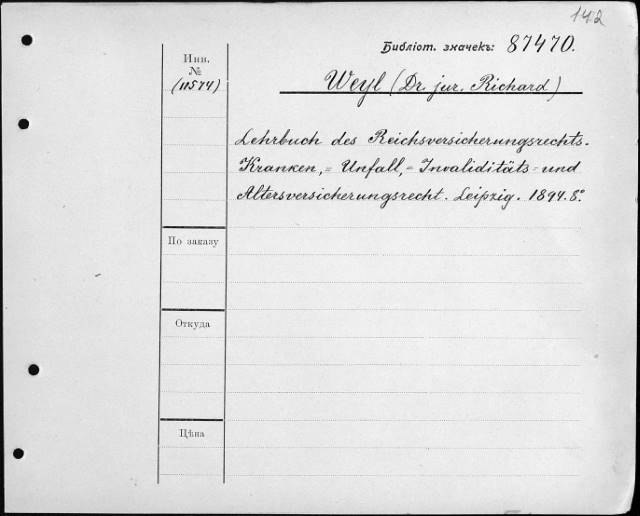 142
Библіот. значекъ: 87470.
Инв.
№
(11574)
Weyl (Dr. jur. Richard)
Lehrbuch des Reichsversicherungsrechts.
Kranken,= Unfall,= Invaliditäts= und
Altersversicherungsrecht. Leipzig. 1894. 8°.
По заказу
Откуда
Цѣна